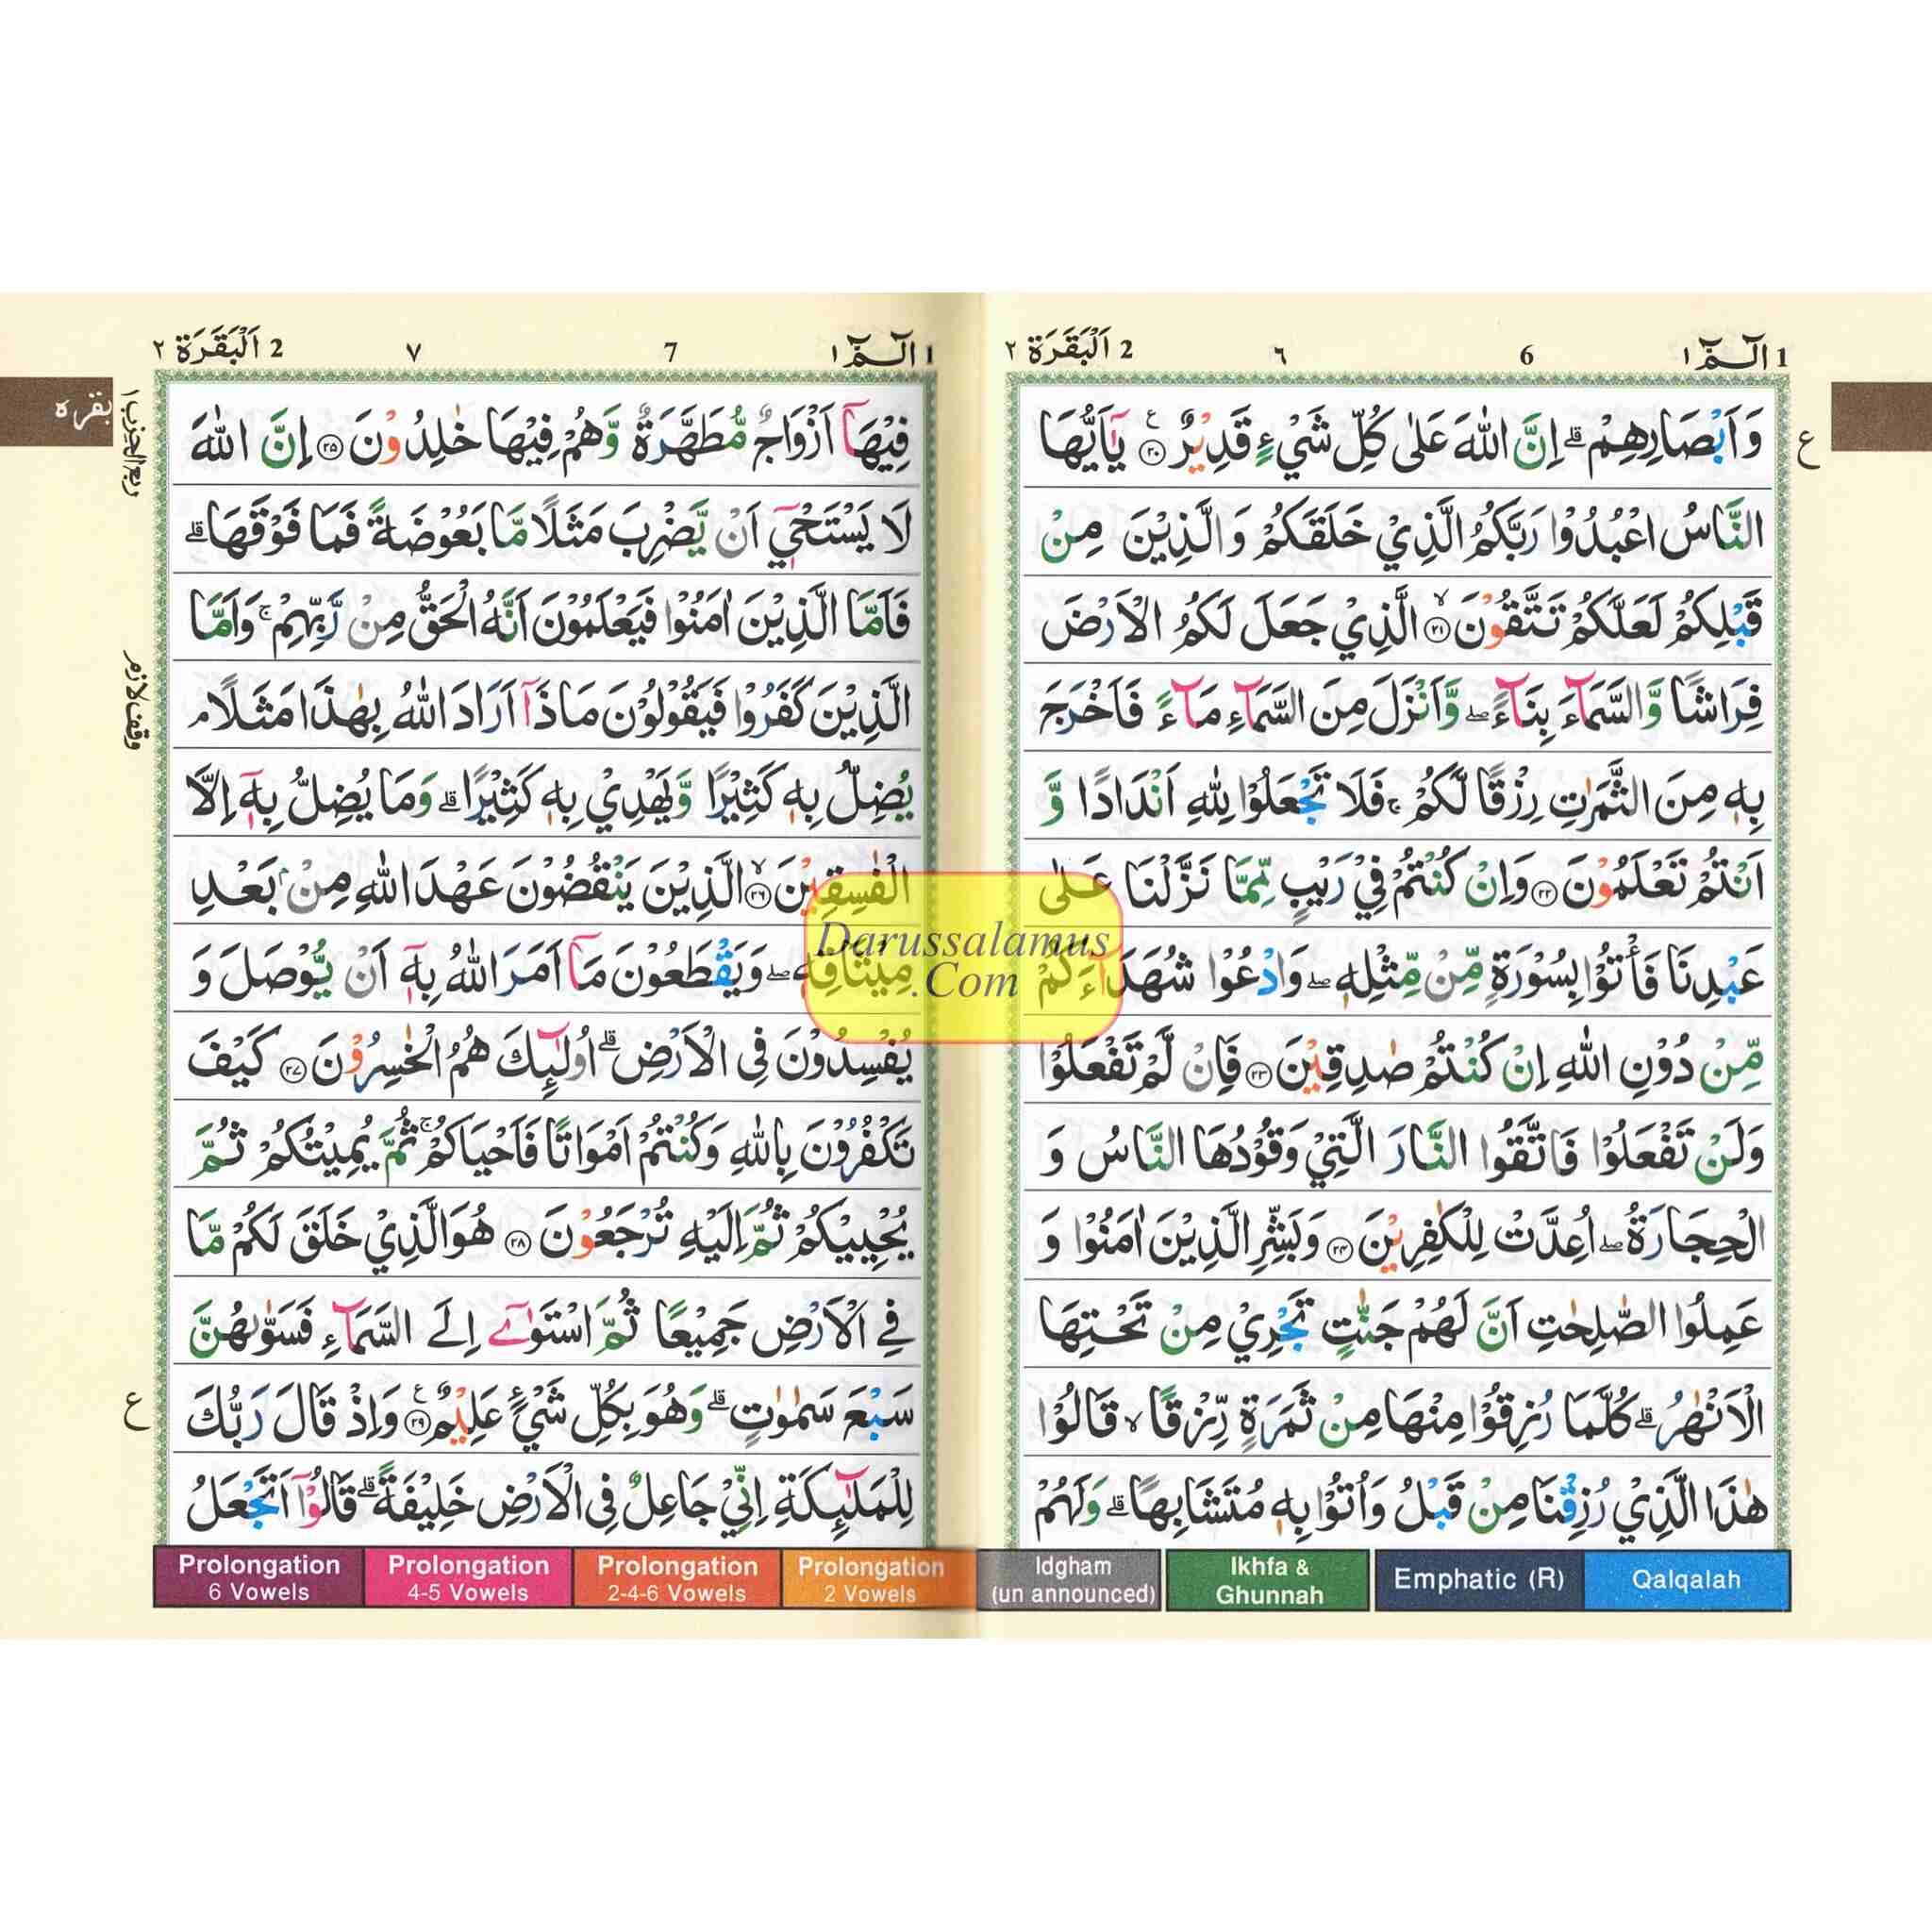 1 الٓمّٓ ١
6
٦
2 اَلْبَقَرَة ٢
ع
وَاَبْصَارِهِمْ ؕ اِنَّ اللّٰهَ عَلٰى كُلِّ شَيْءٍ قَدِيْرٌ ۝٢٠ يٰٓاَيُّهَا
النَّاسُ اعْبُدُوْا رَبَّكُمُ الَّذِيْ خَلَقَكُمْ وَالَّذِيْنَ مِنْ
قَبْلِكُمْ لَعَلَّكُمْ تَتَّقُوْنَ ۝٢١ الَّذِيْ جَعَلَ لَكُمُ الْاَرْضَ
فِرَاشًا وَّالسَّمَآءَ بِنَآءً ۪ وَّاَنْزَلَ مِنَ السَّمَآءِ مَآءً فَاَخْرَجَ
بِهٖ مِنَ الثَّمَرٰتِ رِزْقًا لَّكُمْ ۚ فَلَا تَجْعَلُوْا لِلّٰهِ اَنْدَادًا وَّ
اَنْتُمْ تَعْلَمُوْنَ ۝٢٢ وَاِنْ كُنْتُمْ فِيْ رَيْبٍ مِّمَّا نَزَّلْنَا عَلٰى
عَبْدِنَا فَأْتُوْا بِسُوْرَةٍ مِّنْ مِّثْلِهٖ ۪ وَادْعُوْا شُهَدَآءَكُمْ
مِّنْ دُوْنِ اللّٰهِ اِنْ كُنْتُمْ صٰدِقِيْنَ ۝٢٣ فَاِنْ لَّمْ تَفْعَلُوْا
وَلَنْ تَفْعَلُوْا فَاتَّقُوا النَّارَ الَّتِيْ وَقُوْدُهَا النَّاسُ وَ
الْحِجَارَةُ ۖ اُعِدَّتْ لِلْكٰفِرِيْنَ ۝٢٤ وَبَشِّرِ الَّذِيْنَ اٰمَنُوْا وَ
عَمِلُوا الصّٰلِحٰتِ اَنَّ لَهُمْ جَنّٰتٍ تَجْرِيْ مِنْ تَحْتِهَا
الْاَنْهٰرُ ؕ كُلَّمَا رُزِقُوْا مِنْهَا مِنْ ثَمَرَةٍ رِّزْقًا ۙ قَالُوْا
هٰذَا الَّذِيْ رُزِقْنَا مِنْ قَبْلُ وَاُتُوْا بِهٖ مُتَشَابِهًا ؕ وَلَهُمْ
1 الٓمّٓ ١
7
٧
2 اَلْبَقَرَة ٢
بقره
ربع الحزب ١
فِيْهَآ اَزْوَاجٌ مُّطَهَّرَةٌ وَّهُمْ فِيْهَا خٰلِدُوْنَ ۝٢٥ اِنَّ اللّٰهَ
لَا يَسْتَحْيٖٓ اَنْ يَّضْرِبَ مَثَلًا مَّا بَعُوْضَةً فَمَا فَوْقَهَا ؕ
فَاَمَّا الَّذِيْنَ اٰمَنُوْا فَيَعْلَمُوْنَ اَنَّهُ الْحَقُّ مِنْ رَّبِّهِمْ ۚ وَاَمَّا
وقف لازم
الَّذِيْنَ كَفَرُوْا فَيَقُوْلُوْنَ مَاذَآ اَرَادَ اللّٰهُ بِهٰذَا مَثَلًا ۘ
يُضِلُّ بِهٖ كَثِيْرًا وَّيَهْدِيْ بِهٖ كَثِيْرًا ؕ وَمَا يُضِلُّ بِهٖٓ اِلَّا
الْفٰسِقِيْنَ ۝٢٦ الَّذِيْنَ يَنْقُضُوْنَ عَهْدَ اللّٰهِ مِنْۢ بَعْدِ
مِيْثَاقِهٖ ۪ وَيَقْطَعُوْنَ مَآ اَمَرَ اللّٰهُ بِهٖٓ اَنْ يُّوْصَلَ وَ
يُفْسِدُوْنَ فِى الْاَرْضِ ؕ اُولٰٓئِكَ هُمُ الْخٰسِرُوْنَ ۝٢٧ كَيْفَ
تَكْفُرُوْنَ بِاللّٰهِ وَكُنْتُمْ اَمْوَاتًا فَاَحْيَاكُمْ ۚ ثُمَّ يُمِيْتُكُمْ ثُمَّ
يُحْيِيْكُمْ ثُمَّ اِلَيْهِ تُرْجَعُوْنَ ۝٢٨ هُوَ الَّذِيْ خَلَقَ لَكُمْ مَّا
فِي الْاَرْضِ جَمِيْعًا ثُمَّ اسْتَوٰٓى اِلَى السَّمَآءِ فَسَوّٰىهُنَّ
سَبْعَ سَمٰوٰتٍ ؕ وَهُوَ بِكُلِّ شَيْءٍ عَلِيْمٌ ۝٢٩ وَاِذْ قَالَ رَبُّكَ
ع
لِلْمَلٰٓئِكَةِ اِنِّيْ جَاعِلٌ فِى الْاَرْضِ خَلِيْفَةً ؕ قَالُوْٓا اَتَجْعَلُ
Darussalamus
.Com
Prolongation
6 Vowels
Prolongation
4-5 Vowels
Prolongation
2-4-6 Vowels
Prolongation
2 Vowels
Idgham
(un announced)
Ikhfa &
Ghunnah
Emphatic (R)
Qalqalah